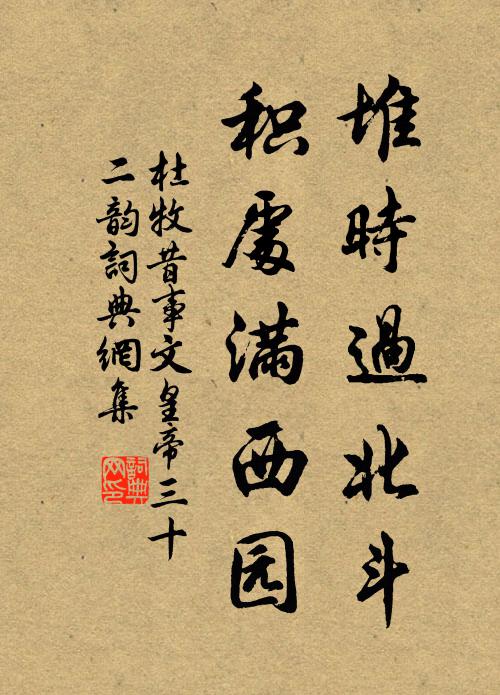 堆時過北斗
积處满西园
杜牧昔事文皇帝三十
二韵詞典網集
詞典网印